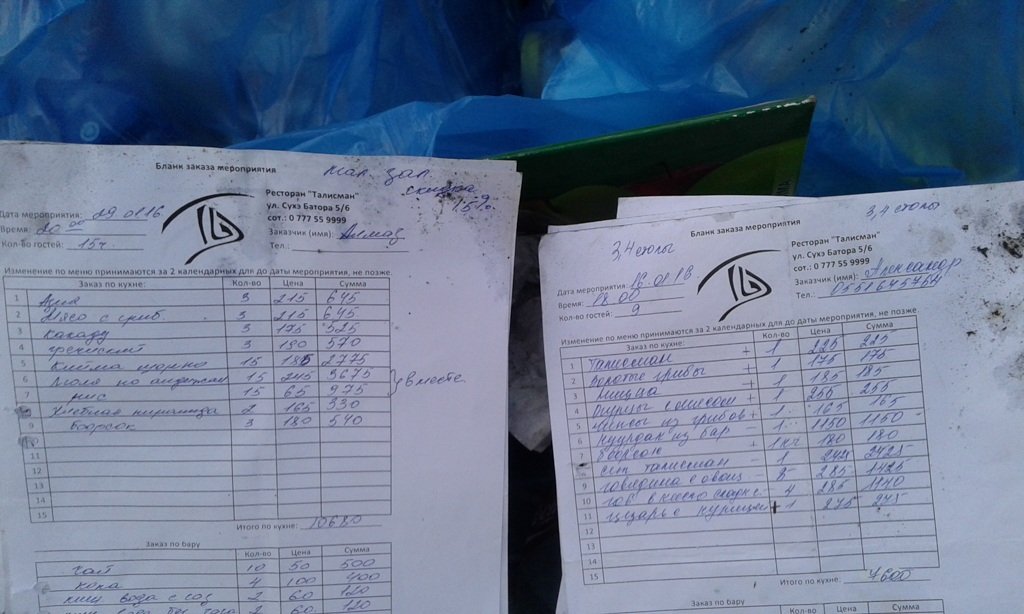 Бланк заказа мероприятия
мал. зал.
скидка 15%
Ресторан "Талисман"
ул. Сухэ Батора 5/6
сот.: 0 777 55 9999
Дата мероприятия: 29.01.16
Время: 20 00
Кол-во гостей: 15ч.
Заказчик (имя): Алмаз
Тел.:
Изменение по меню принимаются за 2 календарных для до даты мероприятия, не позже.
Заказ по кухне: Кол-во Цена Сумма
1 3 215 645
2 Мясо с гриб. 3 215 645
3 какаду 3 175 525
4 греческий 3 190 570
5 15 185 2775
6 15 245 3675
7 рис 15 65 975
вместе
8 Хлебная 2 165 330
9 боорсок 3 180 540
10
11
12
13
14
15
Итого по кухне: 10680
Заказ по бару Кол-во Цена Сумма
чай 10 50 500
кола 4 100 400
вода с газ 2 60 120
вода без газа 2 60 120
3,4 столы
Бланк заказа мероприятия
3,4 столы
Ресторан "Талисман"
ул. Сухэ Батора 5/6
сот.: 0 777 55 9999
Дата мероприятия: 16.01.16
Время: 18.00
Кол-во гостей: 9
Заказчик (имя): Александр
Тел.:
Изменение по меню принимаются за 2 календарных для до даты мероприятия, не позже
Заказ по кухне: Кол-во Цена Сумма
1 Талисман + 1 225 225
2 Золотые грибы + 1 175 175
3 Пицца + 1 185 185
4 + 1 255 255
5 Чипсы из грибов + 1 165 165
6 Куурдак из бар – 1 1150 1150
7 боорсок + 1 180 180
8 сет талисман – 1 2425 2425
9 говядина с овощ 5 285 1425
10 гов в кисло сладк с. 4 285 1140
11 цезарь с курицей + 1
12
13
14
15
Итого по кухне: 7600
Заказ по бару Кол-во Цена Сумма